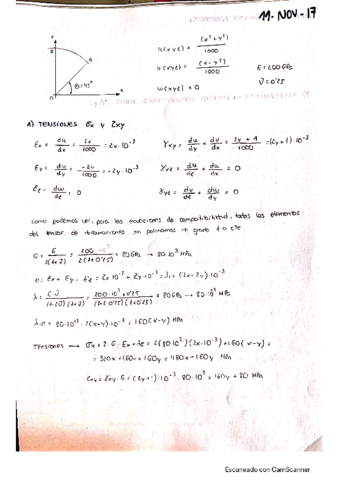 11-NOV-17
Y
A
θ=45°
X
u(xyz) = (x²+y²)/1000
v(xyz) = (x-y²)/1000
w(xyz) = 0
E=200 GPa
ν=0'25
A) TENSIONES σx y τxy
εx = du/dx = 2x/1000 = 2x·10⁻³
γxy = du/dy + dv/dx = 2y+1/1000 = (2y+1)·10⁻³
εy = dv/dy = -2y/1000 = -2y·10⁻³
γyz = dv/dz + dw/dy = 0
εz = dw/dz = 0
du/dz + dw/dx = 0
Como podemos ver, para las ecuaciones de compatibilidad, todos los elementos
del tensor de son polinomios de grado 1 o cte.
G = E/2(1+ν) = 200·10³/2(1+0'25) = 80GPa → 80·10³ MPa
e = εx + εy + εz = 2x·10⁻³ - 2y·10⁻³ = J₁ = (2x-2y)·10⁻³
λ = E·ν/(1-2ν)(1+ν) = 200·10³·0'25/(1-2·0'25)(1+0'25) = 80GPa → 80·10³ MPa
λ·e = 80·10³·2(x-y)·10⁻³ = 160(x-y) MPa
TENSIONES → σx = 2·G·εx + λe = 2(80·10³)(2x·10⁻³) + 160(x-y) =
= 320x + 160x - 160y = 480x - 160y MPa
τxy = γxy·G = (2y+1)·10⁻³·80·10³ = 160y + 80 MPa
Escaneado con CamScanner